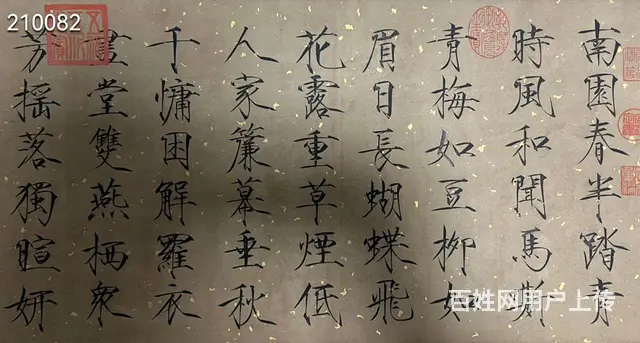 210082
南園春半踏青
時風和聞馬嘶
青梅如豆柳如
眉日長蝴蝶飛
花露重草煙低
人家簾幕垂秋
千慵困解羅衣
畫堂雙燕栖衆
芳搖落獨暄妍
百姓网用户上传